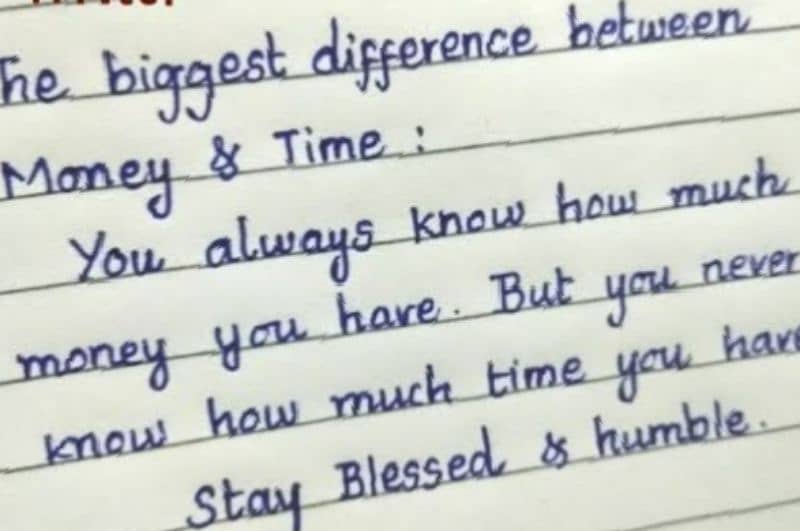 The biggest difference between
Money & Time :
You always know how much
money you have. But you never
know how much time you have
Stay Blessed & humble.